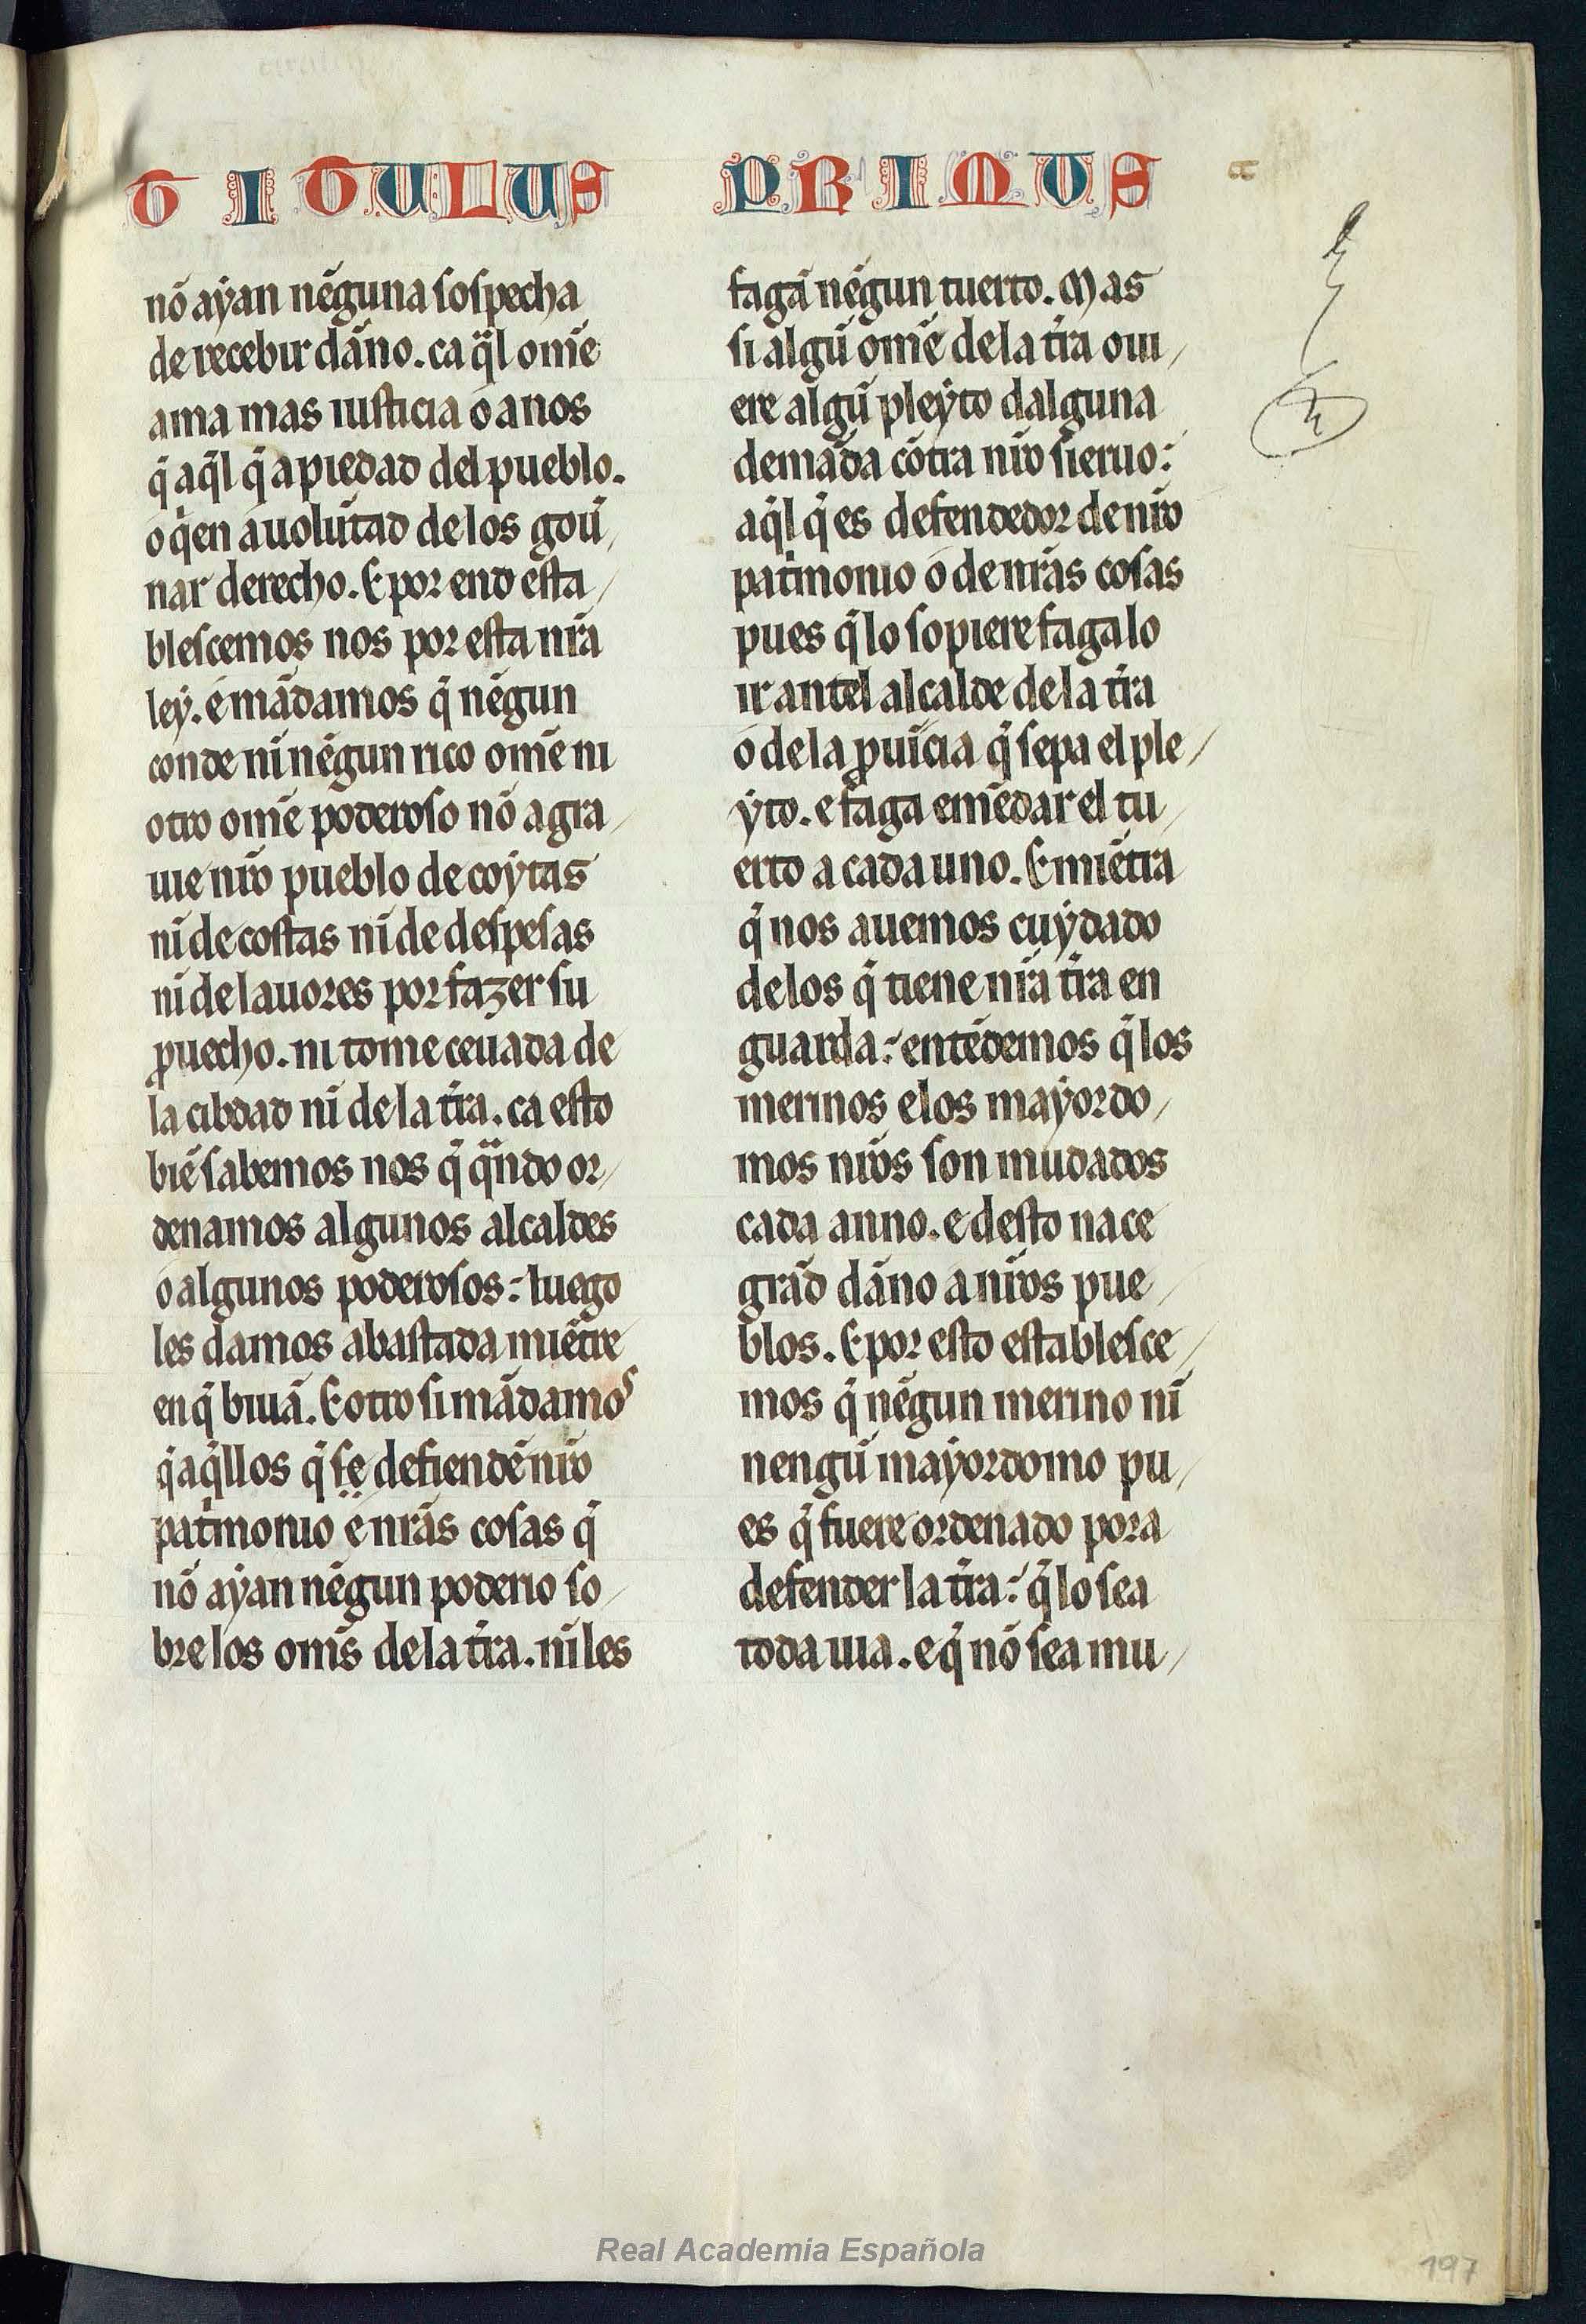 TITULUS PRIMUS
nõ aẏan nẽguna soſpecha
de recebir dãno. ca q̃l om̃e
ama mas iuſticia o a nos
q̃ aq̃l q̃ a piedad del pueblo.
o q̃en a uolũtad de los gou̓/
nar derecho. E por end eſta/
bleſcemos nos por eſta nr̃a
leẏ. e mãdamos q̃ nẽgun
conde nĩ nẽgun rico om̃e ni
otro om̃e poderoso nõ agra/
uie nr̃o pueblo de coẏtas
nĩ de coſtas nĩ de deſpeſas
nĩ de lauores por fazer ſu
ꝓuecho. ni tome ceuada de
la cibdad nĩ de la tr̃ra. ca eſto
biẽ ſabemos nos q̃ q̃ndo or/
denamos algunos alcaldes
o algunos poderoſos: luego
les damos abaſtada miẽtre
en q̃ biuã. E otro ſi mãdamos
q̃ aq̃llos q̃ ſe defiendẽ nr̃o
pat̓monio e nr̃as coſas q̃
nõ aẏan nẽgun poderio ſo/
bre los om̃s de la tr̃ra. nĩ les
fagã nẽgun tuerto. Mas
ſi algũ om̃e de la tr̃ra oui/
ere algũ pleẏto dalguna
demãda cõtra nr̃o ſieruo:
aq̃l q̃ es defendedor de nr̃o
pat̓monio o de nr̃as coſas
pues q̃ lo ſopiere faga lo
ir antel alcalde de la tr̃ra
o de la ꝓuĩcia q̃ ſepa el ple/
ẏto. e faga emẽdar el tu/
erto a cada uno. E miẽtra
q̃ nos auemos cuẏdado
de los q̃ tiene nr̃a tr̃ra en
guarda: entẽdemos q̃ los
merinos e los maẏordo/
mos nr̃os ſon mudados
cada anno. e deſto nace
grãd dãno a nr̃os pue/
blos. E por eſto eſtableſce/
mos q̃ nẽgun merino nĩ
nengũ maẏordomo pu/
es q̃ fuere ordenado pora
defender la tr̃ra: q̃ lo ſea
toda uia. e q̃ nõ ſea mu/
Real Academia Española
197